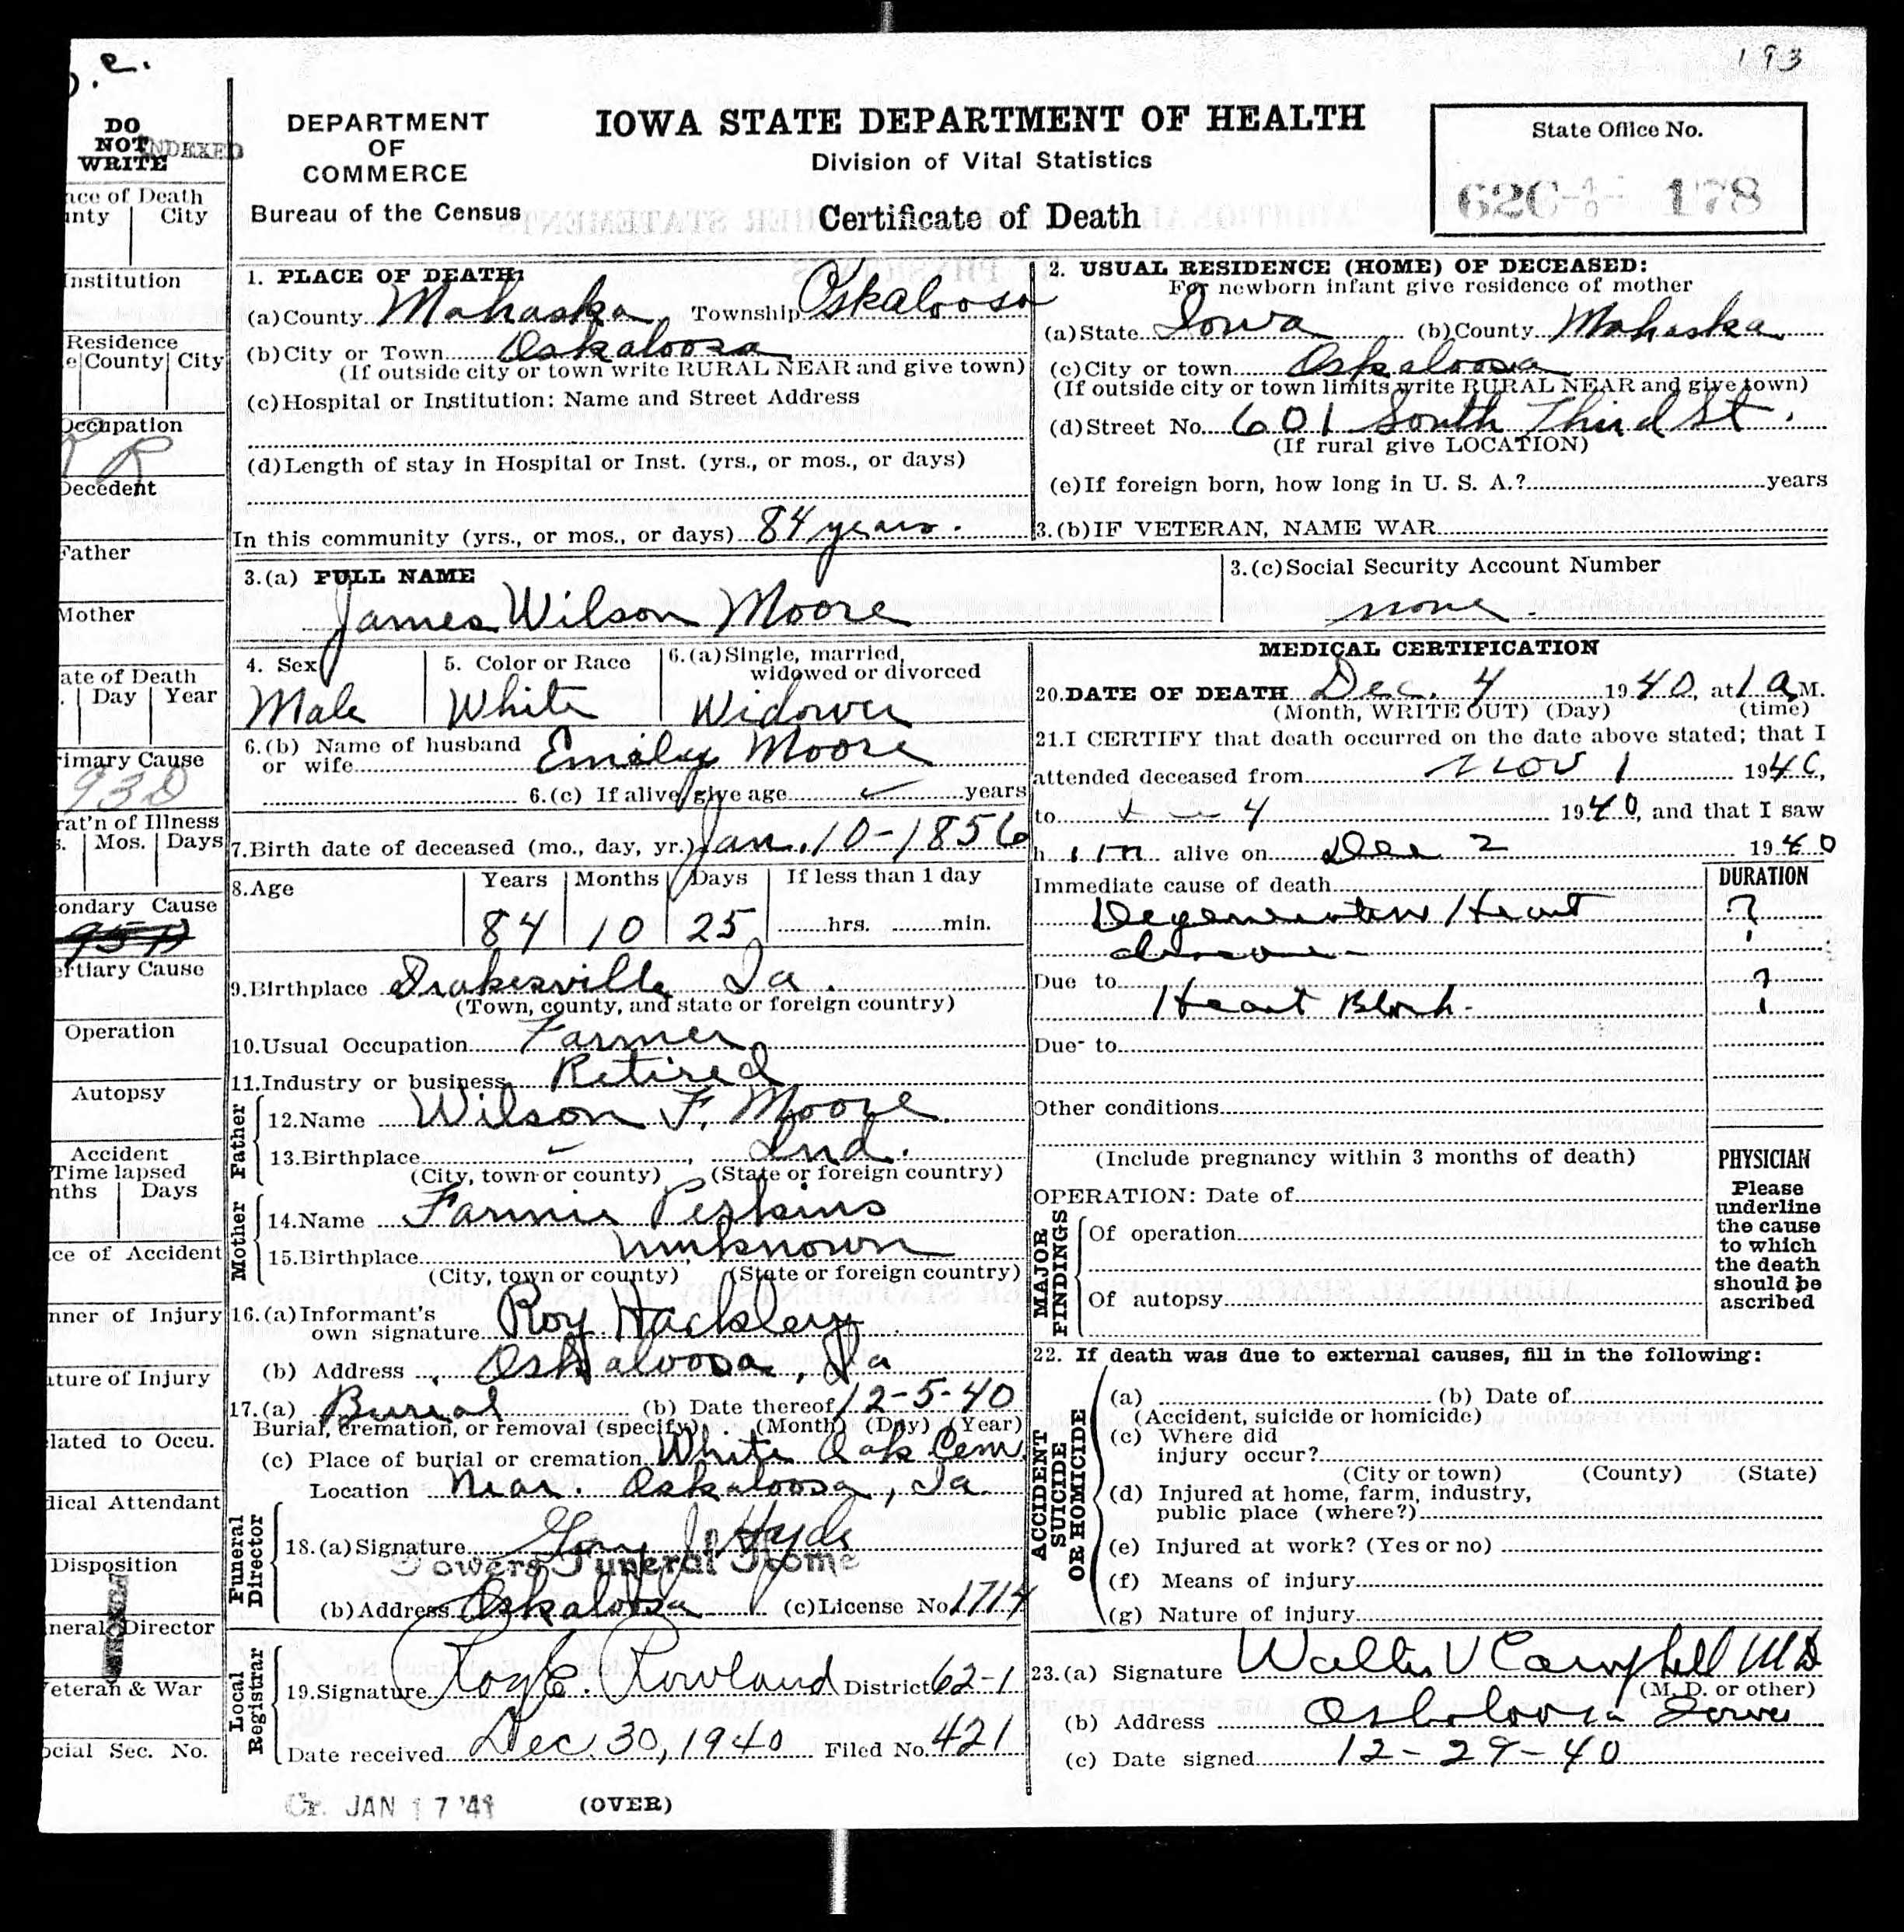 193
DO NOT WRITE
INDEXED
DEPARTMENT
OF
COMMERCE
Bureau of the Census
IOWA STATE DEPARTMENT OF HEALTH
Division of Vital Statistics
Certificate of Death
State Office No.
178
1. PLACE OF DEATH:
(a) County Mahaska Township Oskaloosa
(b) City or Town Oskaloosa
(If outside city or town write RURAL NEAR and give town)
(c) Hospital or Institution: Name and Street Address
(d) Length of stay in Hospital or Inst. (yrs., or mos., or days)
In this community (yrs., or mos., or days) 84 years.
2. USUAL RESIDENCE (HOME) OF DECEASED:
For newborn infant give residence of mother
(a) State Iowa (b) County Mahaska
(c) City or town Oskaloosa
(If outside city or town limits write RURAL NEAR and give town)
(d) Street No. 601 South Third St.
(If rural give LOCATION)
(e) If foreign born, how long in U. S. A.? years
3. (b) IF VETERAN, NAME WAR
3. (a) FULL NAME
James Wilson Moore
3. (c) Social Security Account Number
none
4. Sex
Male
5. Color or Race
White
6. (a) Single, married, widowed or divorced
Widower
6. (b) Name of husband or wife Emily Moore
6. (c) If alive give age years
7. Birth date of deceased (mo., day, yr.) Jan. 10-1856
8. Age Years Months Days If less than 1 day
84 10 25 hrs. min.
9. Birthplace Drakesville Ia.
(Town, county, and state or foreign country)
10. Usual Occupation Farmer
11. Industry or business Retired
Father
12. Name Wilson F. Moore
13. Birthplace , Ind.
(City, town or county) (State or foreign country)
Mother
14. Name Fannie Perkins
15. Birthplace unknown
(City, town or county) (State or foreign country)
16. (a) Informant's
own signature Roy Hackley
(b) Address Oskaloosa, Ia
17. (a) Burial (b) Date thereof 12-5-40
Burial, cremation, or removal (specify) (Month) (Day) (Year)
(c) Place of burial or cremation White Oak Cem
Location Near. Oskaloosa, Ia
Funeral Director
18. (a) Signature Hyde
Powers Funeral Home
(b) Address Oskaloosa (c) License No. 1714
Local Registrar
19. Signature Roy E. Rowland District 62-1
Date received Dec. 30, 1940 Filed No. 421
MEDICAL CERTIFICATION
20. DATE OF DEATH Dec. 4 1940, at 1 a M.
(Month, WRITE OUT) (Day) (time)
21. I CERTIFY that death occurred on the date above stated; that I
attended deceased from Nov 1 1940,
to Dec 4 1940, and that I saw
h im alive on Dec 2 1940
Immediate cause of death DURATION
Degenerative Heart ?
disease - '
Due to ?
Heart Block -
Due to
Other conditions
(Include pregnancy within 3 months of death)
PHYSICIAN
Please
underline
the cause
to which
the death
should be
ascribed
OPERATION: Date of
MAJOR FINDINGS
Of operation
Of autopsy
22. If death was due to external causes, fill in the following:
ACCIDENT SUICIDE OR HOMICIDE
(a) (b) Date of
(Accident, suicide or homicide)
(c) Where did
injury occur?
(City or town) (County) (State)
(d) Injured at home, farm, industry,
public place (where?)
(e) Injured at work? (Yes or no)
(f) Means of injury
(g) Nature of injury
23. (a) Signature Walter V Campbell MD
(M. D. or other)
(b) Address Oskaloosa Iowa
(c) Date signed 12-29-40
JAN 17 '41
(OVER)
ace of Death
unty City
Institution
Residence
e County City
Occupation
R R
Decedent
Father
Mother
ate of Death
. Day Year
rimary Cause
93D
rat'n of Illness
s. Mos. Days
ondary Cause
ertiary Cause
Operation
Autopsy
Accident
Time lapsed
nths Days
ce of Accident
nner of Injury
ature of Injury
lated to Occu.
dical Attendant
Disposition
neral Director
eteran & War
ocial Sec. No.